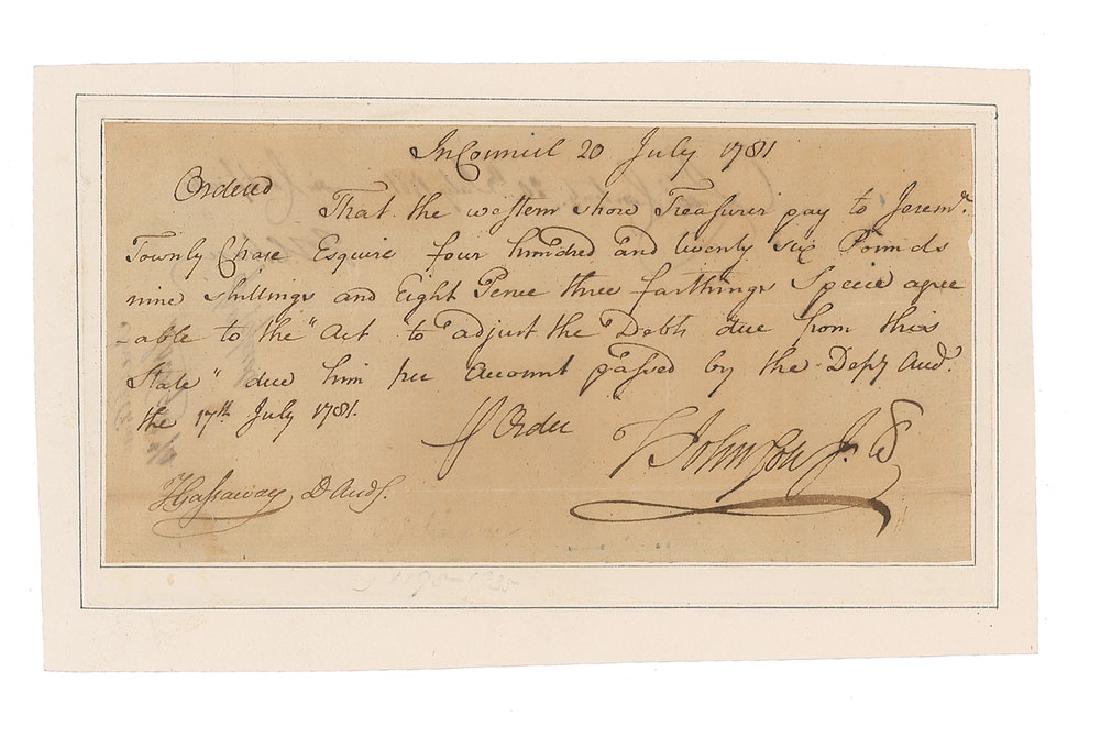 In Council 20 July 1781
Ordered
That the western shore Treasurer pay to Jeremh.
Townly Chase Esquire four hundred and twenty six Pounds
nine shillings and Eight Pence three farthings Specie agree
-able to the "Act to adjust the Debts due from this
State" due him per Account passed by the Depy Aud.
the 17th July 1781.
Order
T Johnson Jr.
Hassaway D Audr.